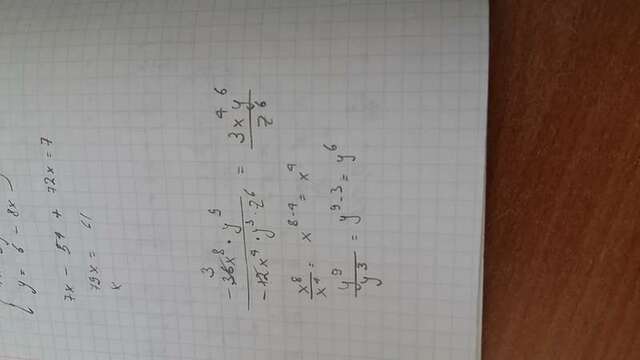 y = 6 - 8x
7x - 54 + 72x = 7
79x = 61
x
3
-36x⁸ · y⁹ / -12x⁴ · y³ · z⁶ = 3x⁴y⁶ / z⁶
x⁸/x⁴ = x⁸⁻⁴ = x⁴
y⁹/y³ = y⁹⁻³ = y⁶